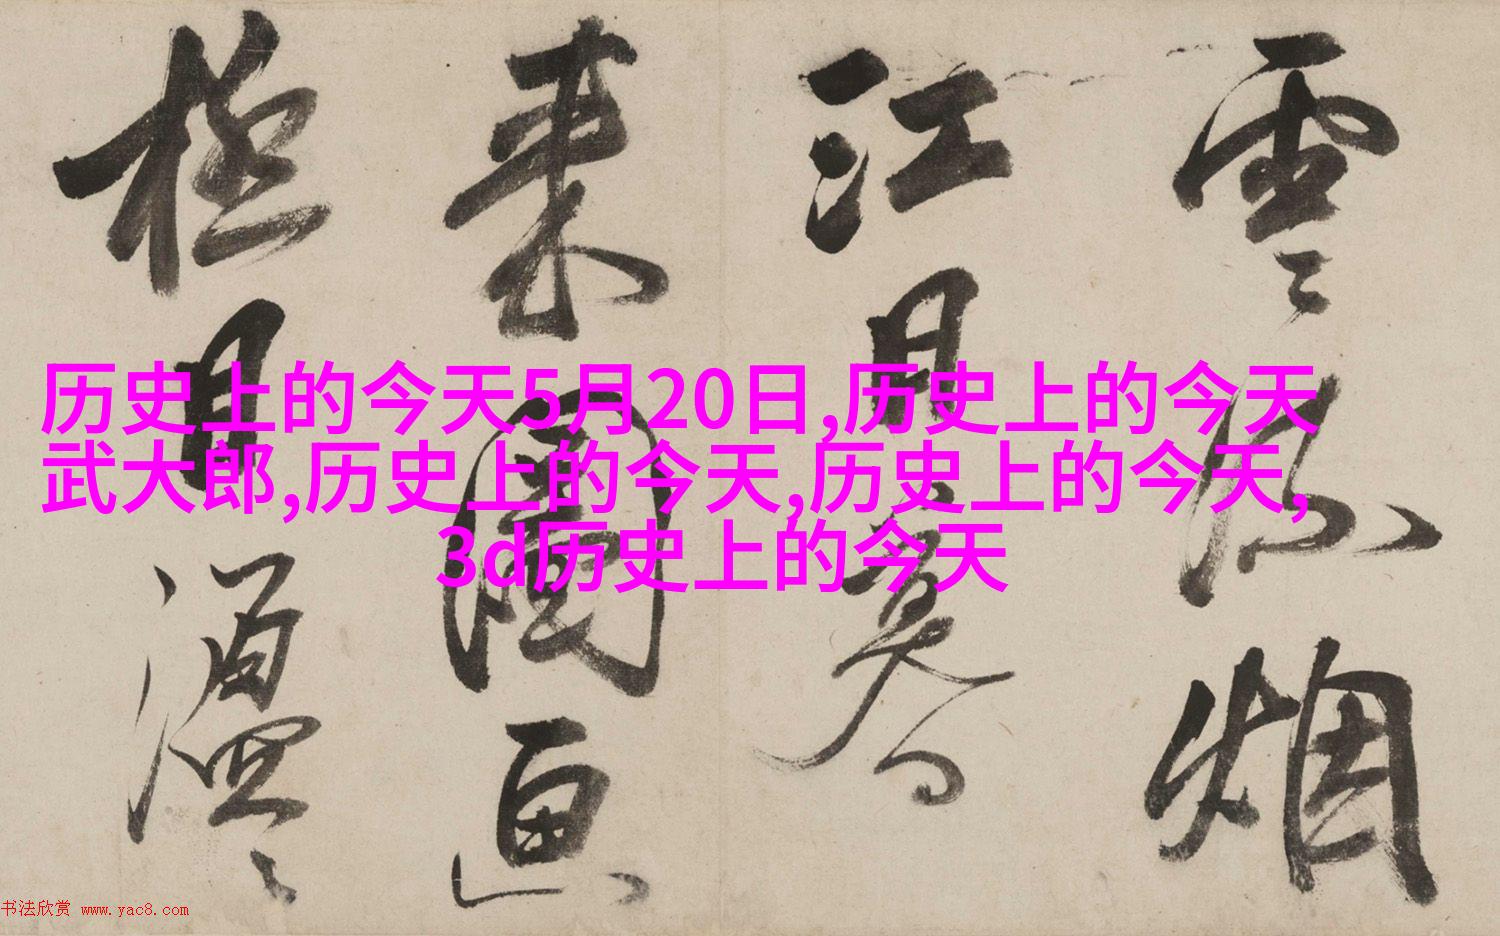 雲烟
江月
来圖画
極目
历史上的今天5月20日,历史上的今天
武大郎,历史上的今天,历史上的今天,
3d历史上的今天
书法欣赏 www.yac8.com